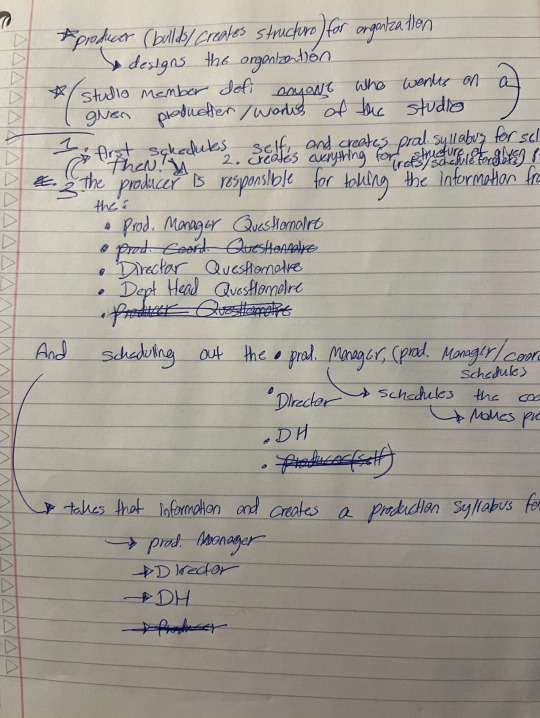 * producer (builds/creates structure) for organization
→ designs the organization
* (studio member defi anyone who works on a
given production/works of the studio)
1. first schedules self, and creates prod. syllabus for sel
THEN! 2. creates everything for structure of given p
3 the producer is responsible for taking the information fro
the:
• Prod. Manager Questionaire
• prod. Coord. Questionnaire
• Director Questionaire
• Dept Head Questionaire
• producer Questionaire
And scheduling out the • prod. Manager, (prod. Manager/coord
schedules
• Director → schedules the coo
→ Makes pro
• DH
• Producer (self)
→ takes that information and creates a production syllabus fo
→ prod. Manager
→ Director
→ DH
→ Producer